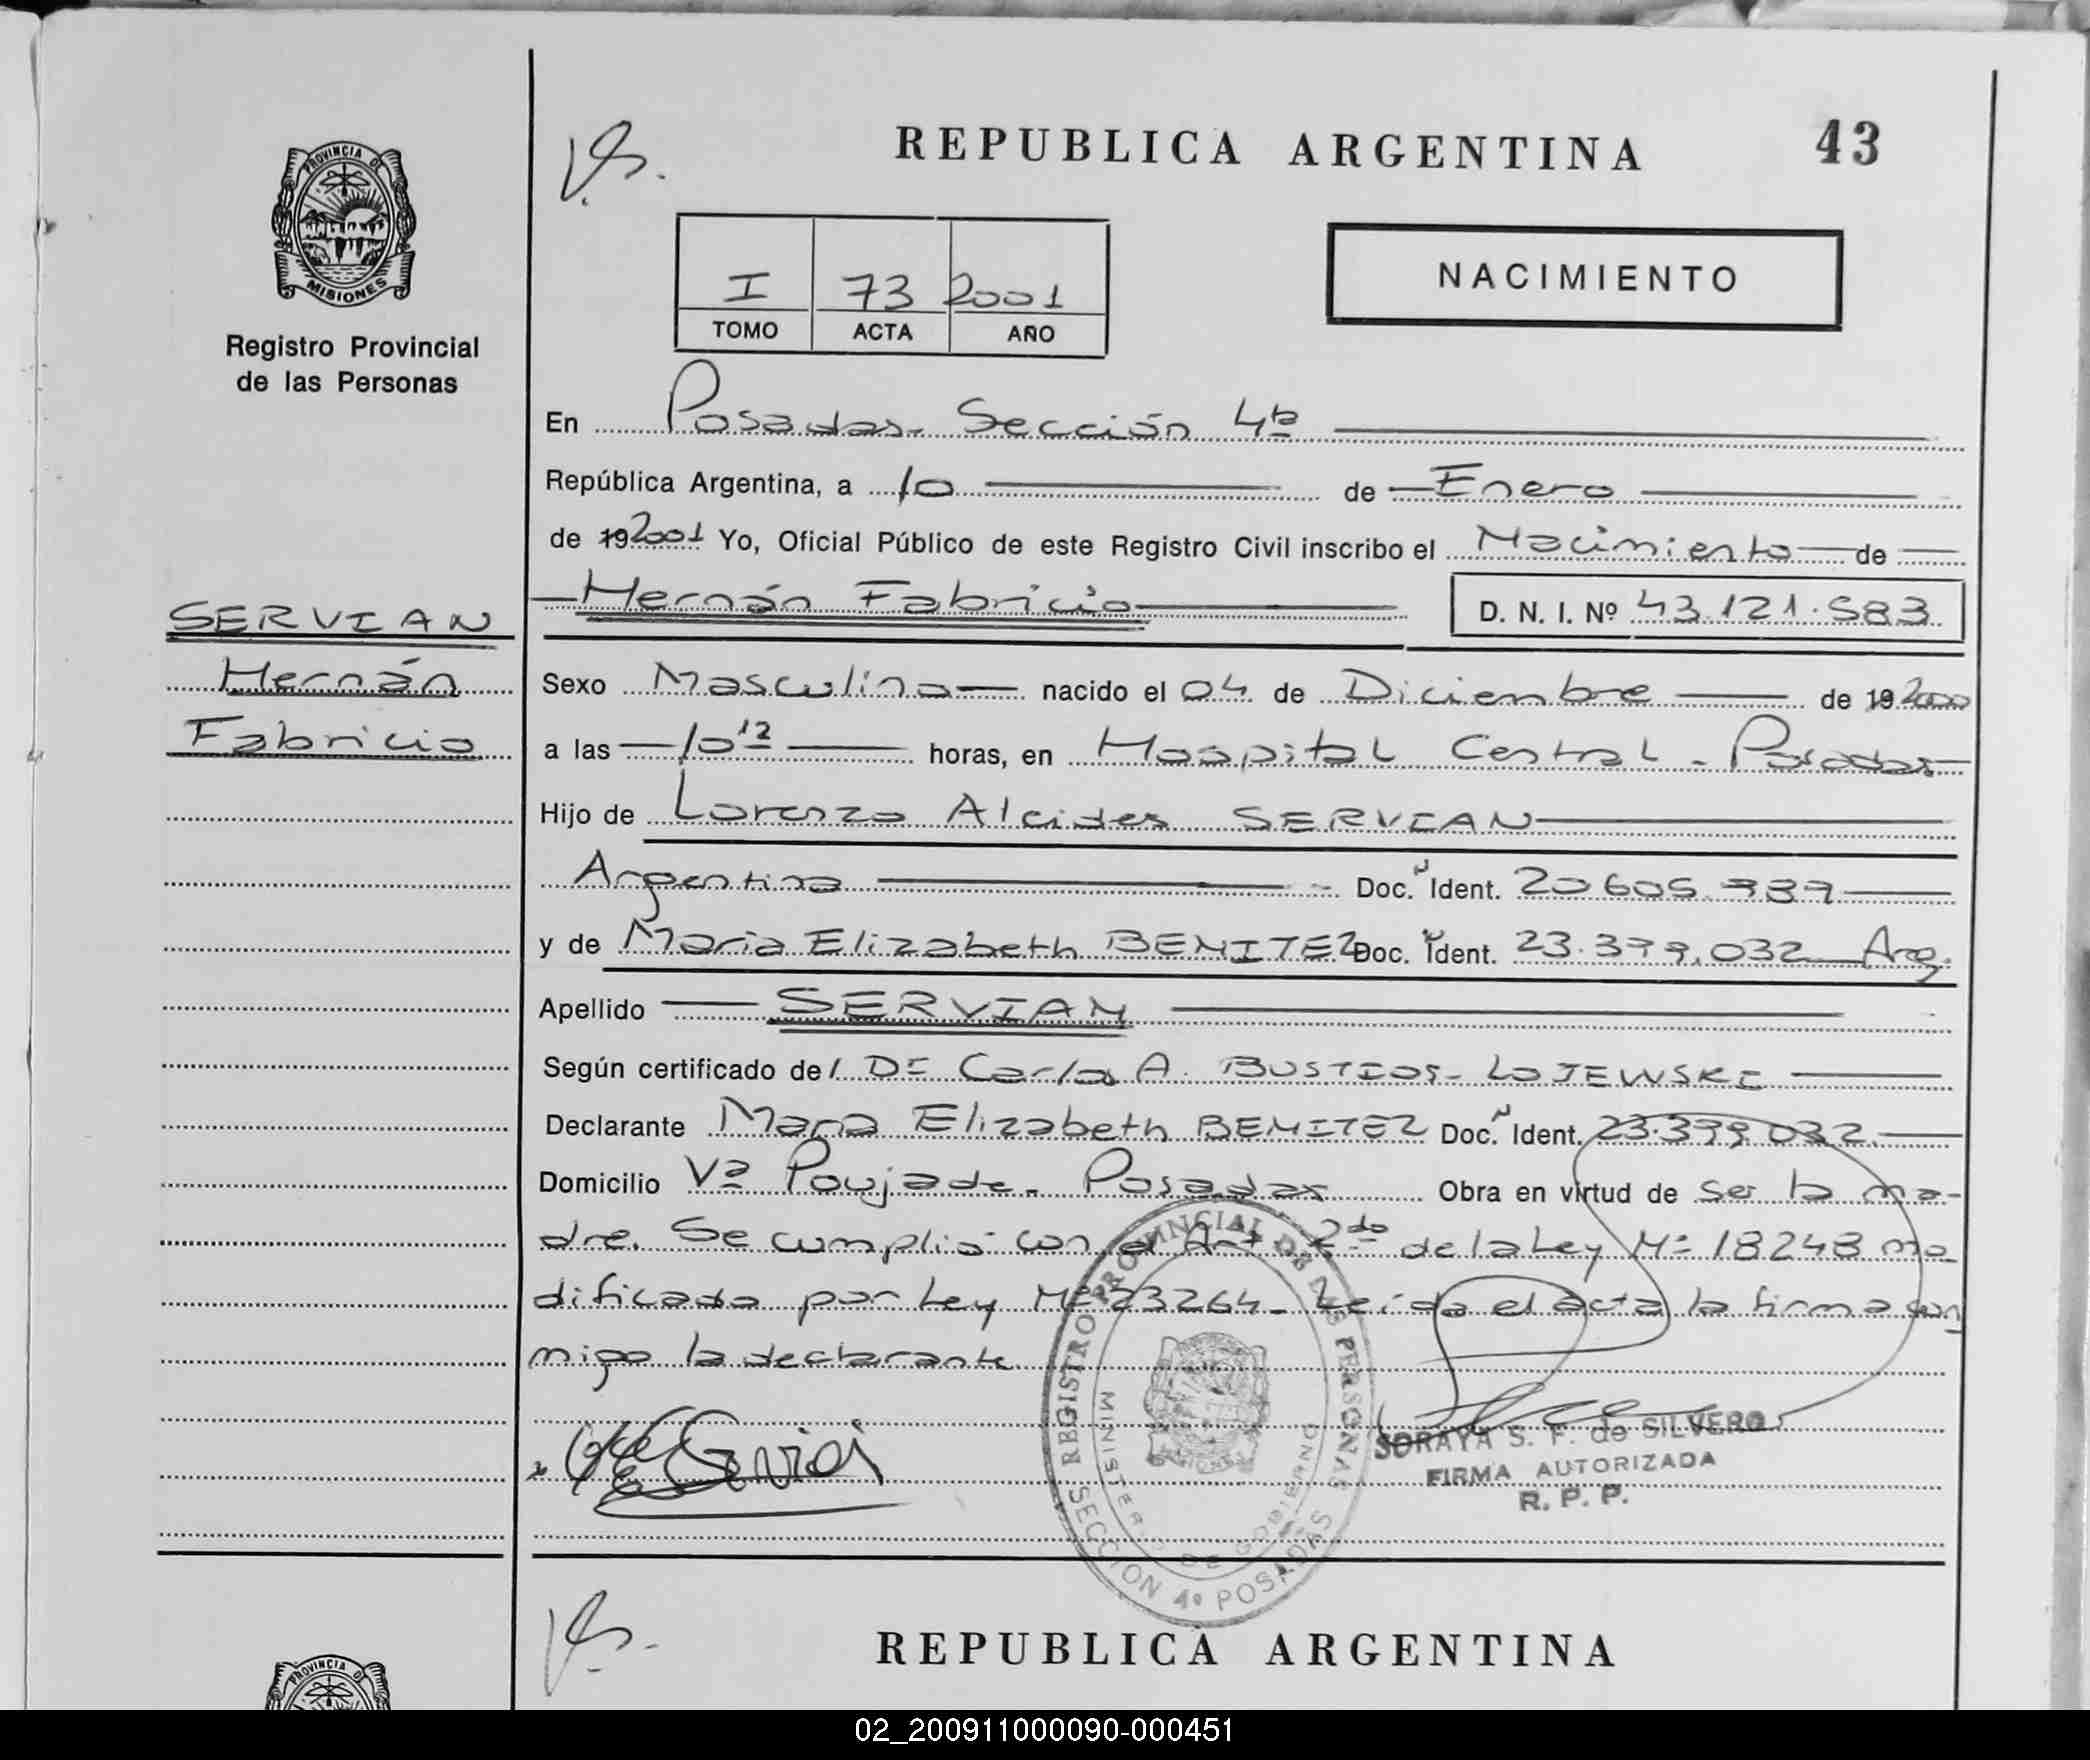 REPUBLICA ARGENTINA
43
PROVINCIA DE
MISIONES
Registro Provincial
de las Personas
I 73 2001
TOMO ACTA AÑO
NACIMIENTO
En Posadas. Sección 4ta
República Argentina, a 10 de Enero
de 19 2001 Yo, Oficial Público de este Registro Civil inscribo el Nacimiento de
Hernán Fabricio D. N. I. Nº 43.121.583
SERVIAN
Hernán
Fabricio
Sexo Masculino nacido el 04 de Diciembre de 19 2000
a las 10 12 horas, en Hospital Central - Posadas
Hijo de Lorenzo Alcides SERVIAN
Argentino Doc. Ident. 20.605.
y de María Elizabeth BENITEZ Doc. Ident. 23.399.032 Arg.
Apellido SERVIAN
Según certificado de Dr Carlos A. BUSTIOS - LOJEWSKI
Declarante María Elizabeth BENITEZ Doc. Ident. 23.399.032
Domicilio Vª Poujade. Posadas Obra en virtud de ser la ma-
dre. Se cumplió con el Art 2do de la Ley Nº 18248 mo
dificada por Ley Nº 23264. Leída el acta la firma con
migo la declarante
REGISTRO PROVINCIAL DE LAS PERSONAS
MINISTERIO DE GOBIERNO
MISIONES
SECCION 4º POSADAS
SORAYA S. F. de SILVERO
FIRMA AUTORIZADA
R. P. P.
REPUBLICA ARGENTINA
PROVINCIA DE
02_200911000090-000451